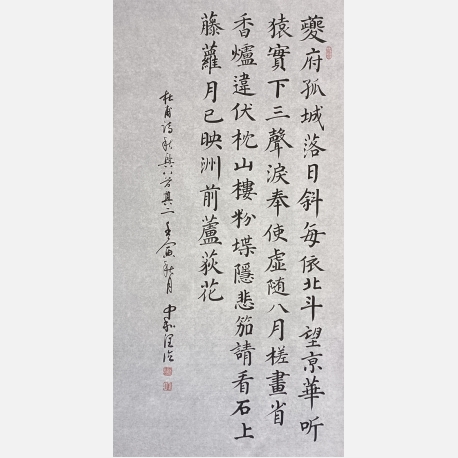 夔府孤城落日斜每依北斗望京華听
猿實下三聲淚奉使虛随八月槎畫省
香爐違伏枕山樓粉堞隱悲笳請看石上
藤蘿月已映洲前蘆荻花
杜甫詩秋興八首其二壬寅秋月